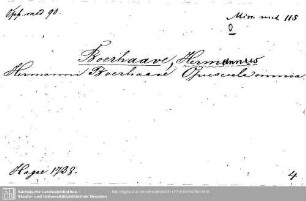 Opp. vald 90.
Mism. med 118
Boerhaave, Hermannus
Hermanni Boerhaave Opuscula omnia.
Hagae 1738.
4
Sächsische Landesbibliothek -
Staats- und Universitätsbibliothek Dresden